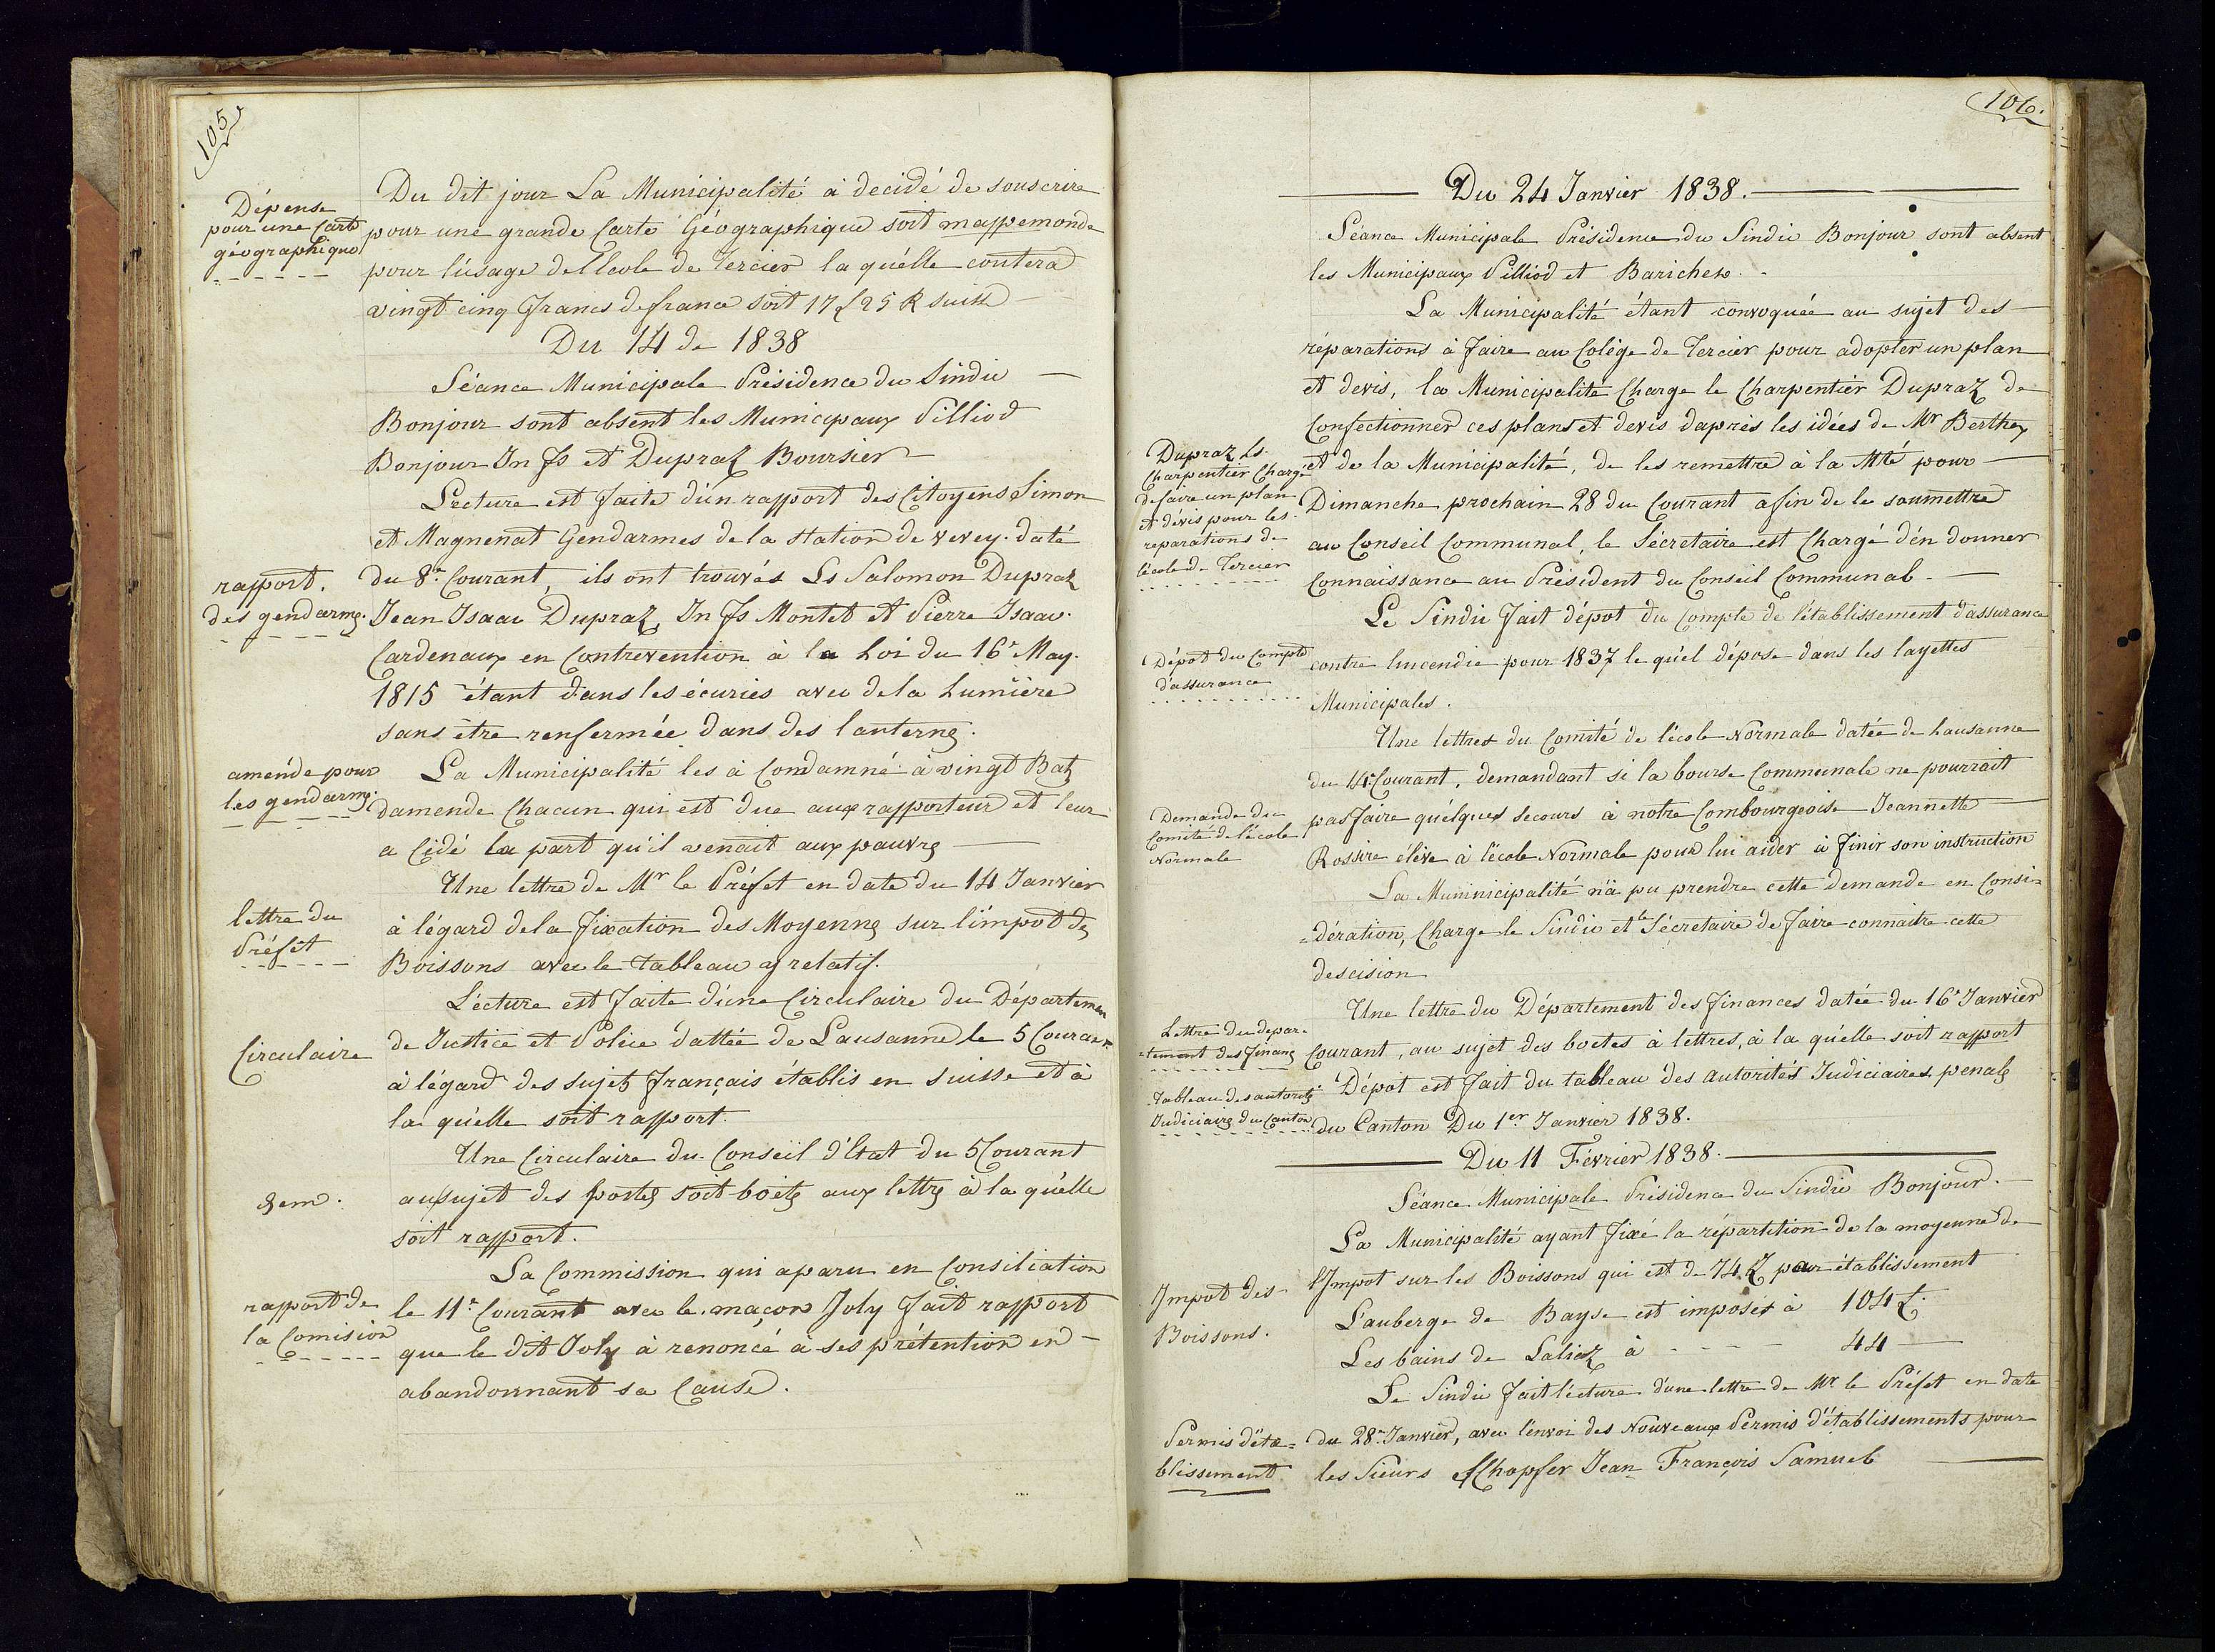 105
Dépense
pour une Carte
géographique
Du dit jour La Municipalité à decidé de souscrire
pour une grande Carte Géographique soit mappemonde
pour l'usage de l'Ecole de Tercier la quélle coutera
vingt cinq francs de france soit 17 f 25 R suisse
Du 14 de 1838
Séance Municipale Présidence du Sindic
Bonjour sont absent les Municipaux Pilliod
Bonjour Jn Fs et Dupraz Boursier
Lecture est faite d'un rapport des Citoyens Simon
et Magnenat Gendarmes de la station de vevey. daté
rapport.
des gendarmes.
du 8e Courant, ils ont trouvés Ls Salomon Dupraz
Jean Isaac Dupraz, Jn Fs Montet et Pierre Isaac
Cardenaux en Contrevention à la Loi du 16e May.
1815 étant dans les écuries avec de la Lumière
sans être renfermée dans des lanternes.
amende pour
les gendarmes.
La Municipalité les à Condamné à vingt Batz
damende Chacun qui est due aux rapporteur et leur
a Cédé la part qu'il venait aux pauvres
lettre du
Préfet
Une lettre de Mr le Préfet en date du 14 Janvier
à légard de la fixation des Moyennes sur l'impot des
Boissons avec le tableau y relatif.
Circulaire
Lécture est faite d'une Circulaire du Départemen
de Justice et Police dattée de Lausanne le 5 Courant
à légard des sujets français établis en suisse et à
la quélle soit rapport.
Idem.
Une Circulaire du Conseil d'Etat du 5 Courant
au sujet des postes soit boites aux lettres à la quélle
soit rapport.
rapport de
la Comision
La Commission qui aparu en Consiliation
le 11e Courant avec le maçon Joly fait rapport
que le dit Joly à renoncé à ses prétention en
abandonnant sa Cause.
106.
Du 24 Janvier 1838.
Séance Municipale Présidence du Sindic Bonjour sont absent
les Municipaux Pilliod et Barichere.
La Municipalité étant convoquée au sujet des
réparations à faire au Colège de Tercier pour adopter un plan
et devis, la Municipalité Charge le Charpentier Dupraz de
Confectionner ces plans et devis daprès les idées de Mr Berthex
Dupraz Ls.
Charpentier Chargé
de faire un plan
et dévis pour les
reparations de
l'école de Tercier
et de la Municipalité, de les remettre à la Mté pour
Dimanche prochain 28 du Courant afin de le soumettre
au Conseil Communal, le Sécretaire est Chargé d'én donner
Connaissance au Président du Conseil Communal.
Dépot du Compte
d'assurance
Le Sindic fait dépot du Compte de l'établissement d'assurance
contre lincendie pour 1837 le qu'el dépose dans les layettes
Municipales.
Demande du
Comité de l'école
Normale
Une lettres du Comité de l'école Normale datée de Lausanne
du 14e Courant, demandant si la bourse Communale ne pourrait
pas faire quélques secours à notre Combourgeoise Jeannette
Rossire élève à l'école Normale pour lui aider à finir son instruction
La Muninicipalité n'à pu prendre cette demande en Consi=
=dération, Charge le Sindic et le Sécretaire de faire connaitre cette
descision
Lettre du depar=
=tement des finances
Une lettre du Département des finances datée du 16e Janvier
Courant, au sujet des boetes à lettres, à la quélle soit rapport
Tableau des autorités
Judiciaires du Canton
Dépot est fait du tableau des autorités Judiciaires penales
du Canton Du 1er Janvier 1838.
Du 11 Février 1838.
Séance Municipale Présidence du Sindic Bonjour.
La Municipalité ayant fixé la répartition de la moyenne de
Impot des
Boissons.
l'Impot sur les Boissons qui est de 74 £ par établissement
L'auberge de Bayse est imposét à 104 £.
Les bains de Laliaz à 44
Le Sindic fait lécture d'une lettre de Mr le Préfet en date
Permis d'éta=
blissement
du 28e Janvier, avec l'envoi des Nouveaux Permis d'établissements pour
les Sieurs Schopfer Jean François Samuel